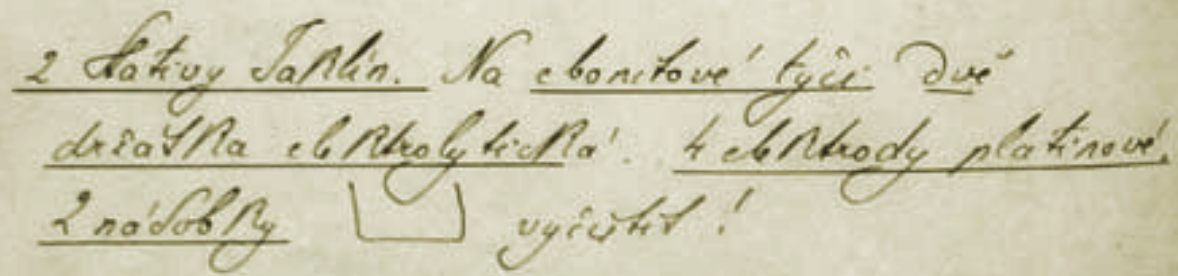 2 stativy Jaklín. Na ebonitové tyči dvě
držátka elektrolytická. 4 elektrody platinové,
2 nádobky vyčistit!